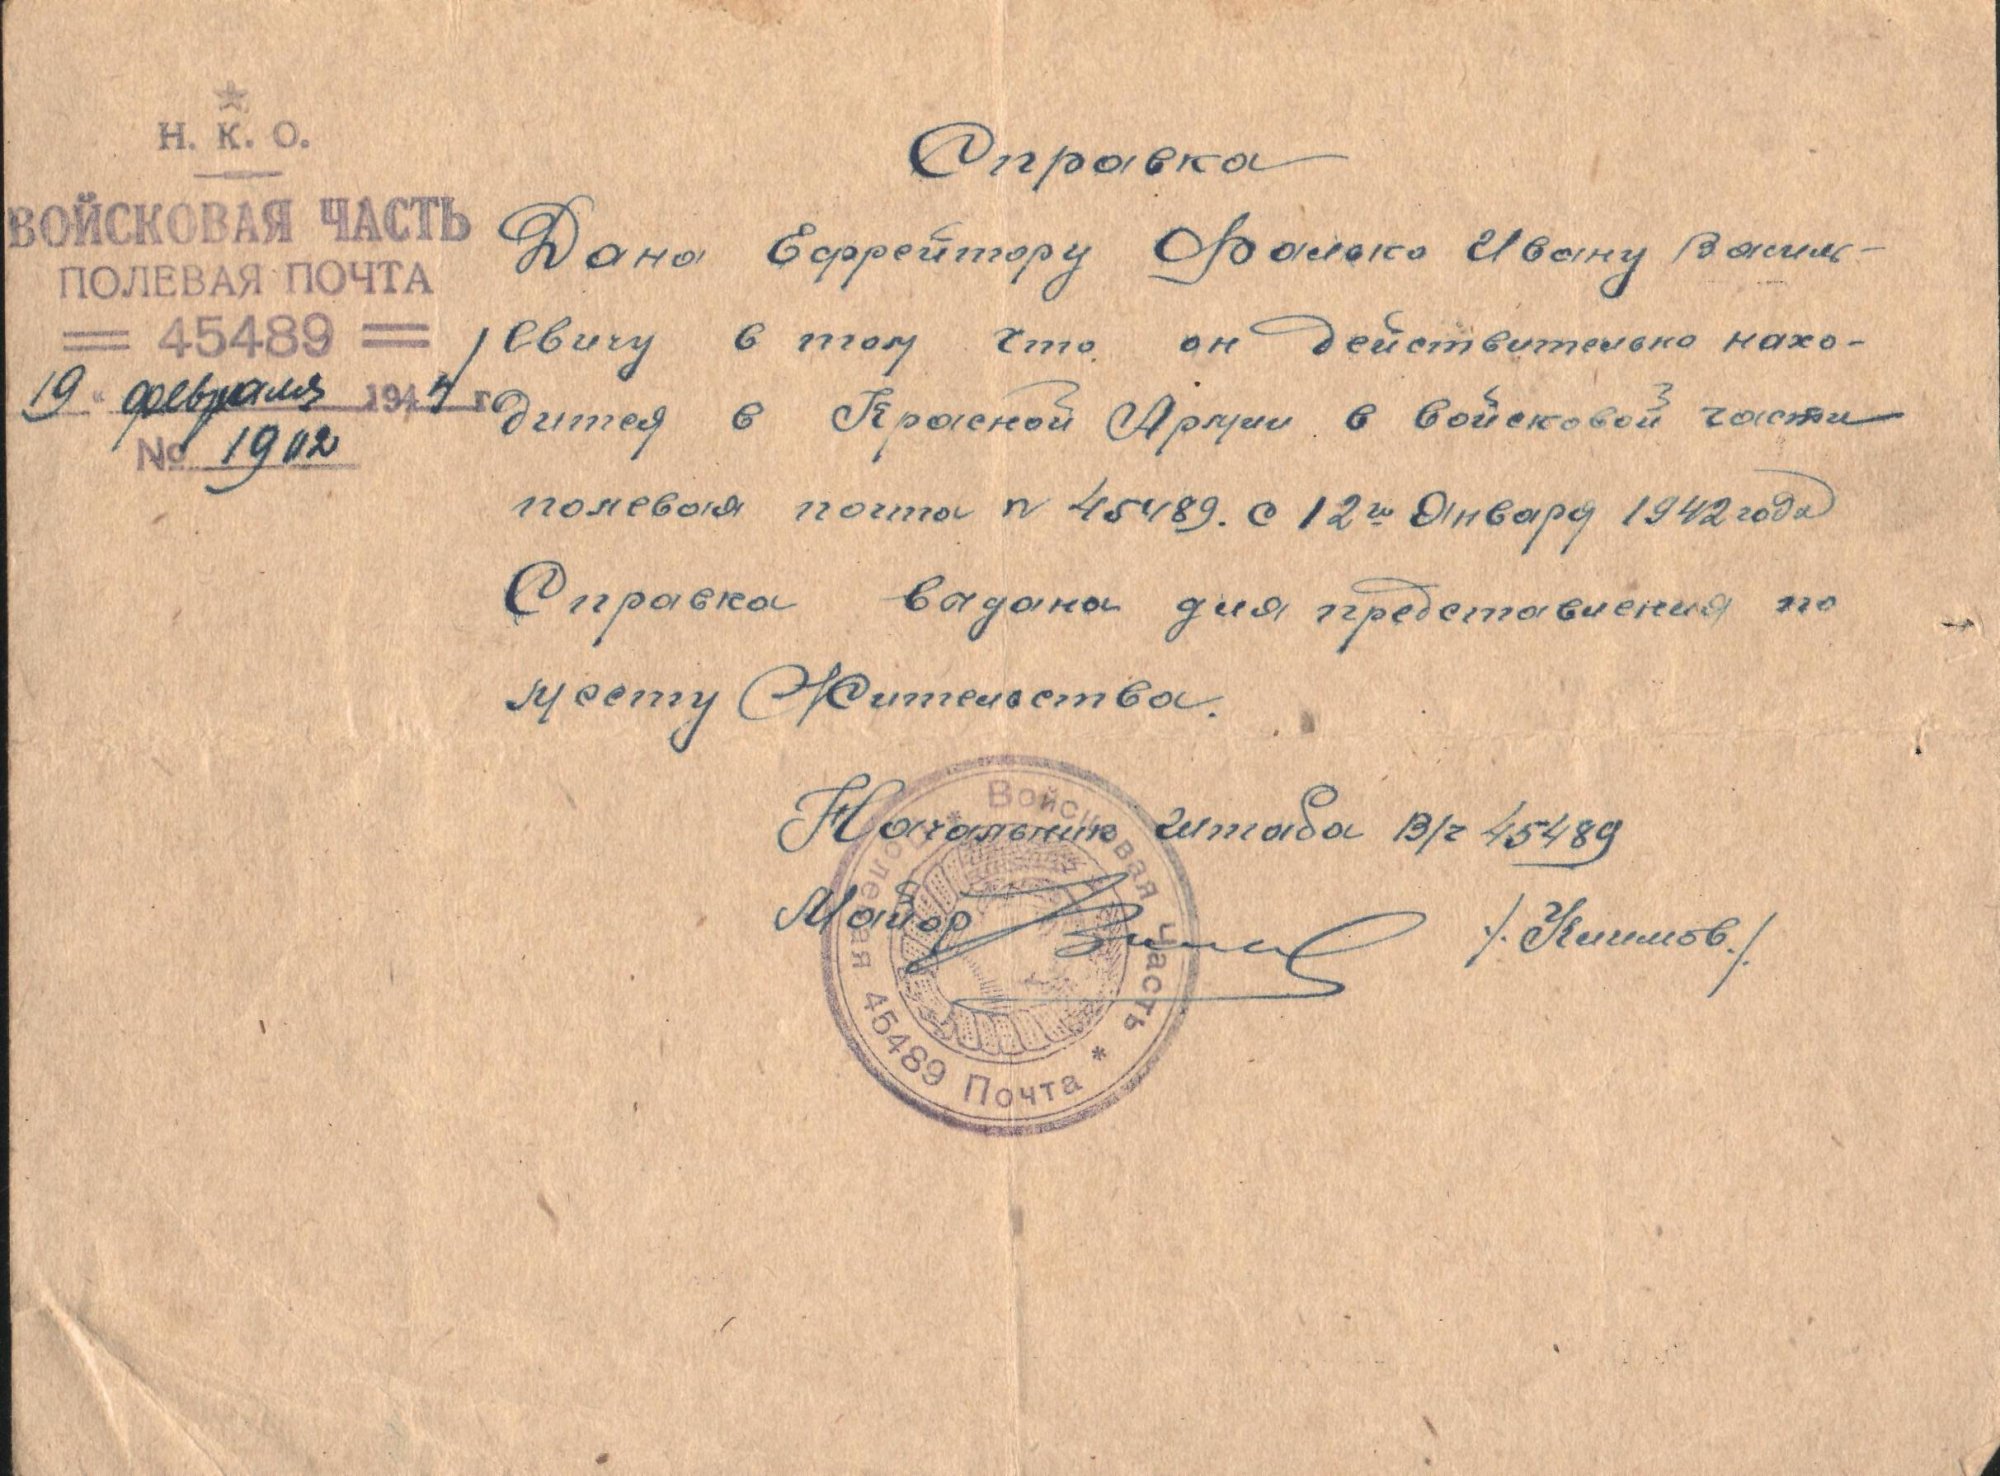 Н. К. О.
ВОЙСКОВАЯ ЧАСТЬ
ПОЛЕВАЯ ПОЧТА
= 45489 =
19 " февраля 1944 г.
№ 1902
Справка
Дана Ефрейтору Фалько Ивану Василь-
евичу в том что он действительно нахо-
дится в Красной Армии в войсковой части
полевая почта n 45489. с 12го Января 1942 года
Справка вадана для представления по
месту Жительства.
Начальник штаба В/ч 45489
Майор /. Климов./
Войсковая Часть * Полевая 45489 Почта *